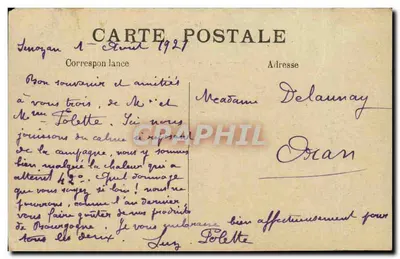 Senozan 1er Août 1921
CARTE POSTALE
Correspondance
Adresse
Bon souvenir et amitiés
à vous trois, de Mr et
Mme Folette. Ici nous
jouissons du calme et repos
de la campagne, nous y sommes
bien malgré la chaleur qui a
atteint 42°. Quel dommage
que vous soyez si loin! nous ne
pourrons, comme l'an dernier
vous faire goûter de nos produits
de Bourgogne. Je vous embrasse bien affectueusement pour
tous les deux. Folette
Madame Delaunay
Oran